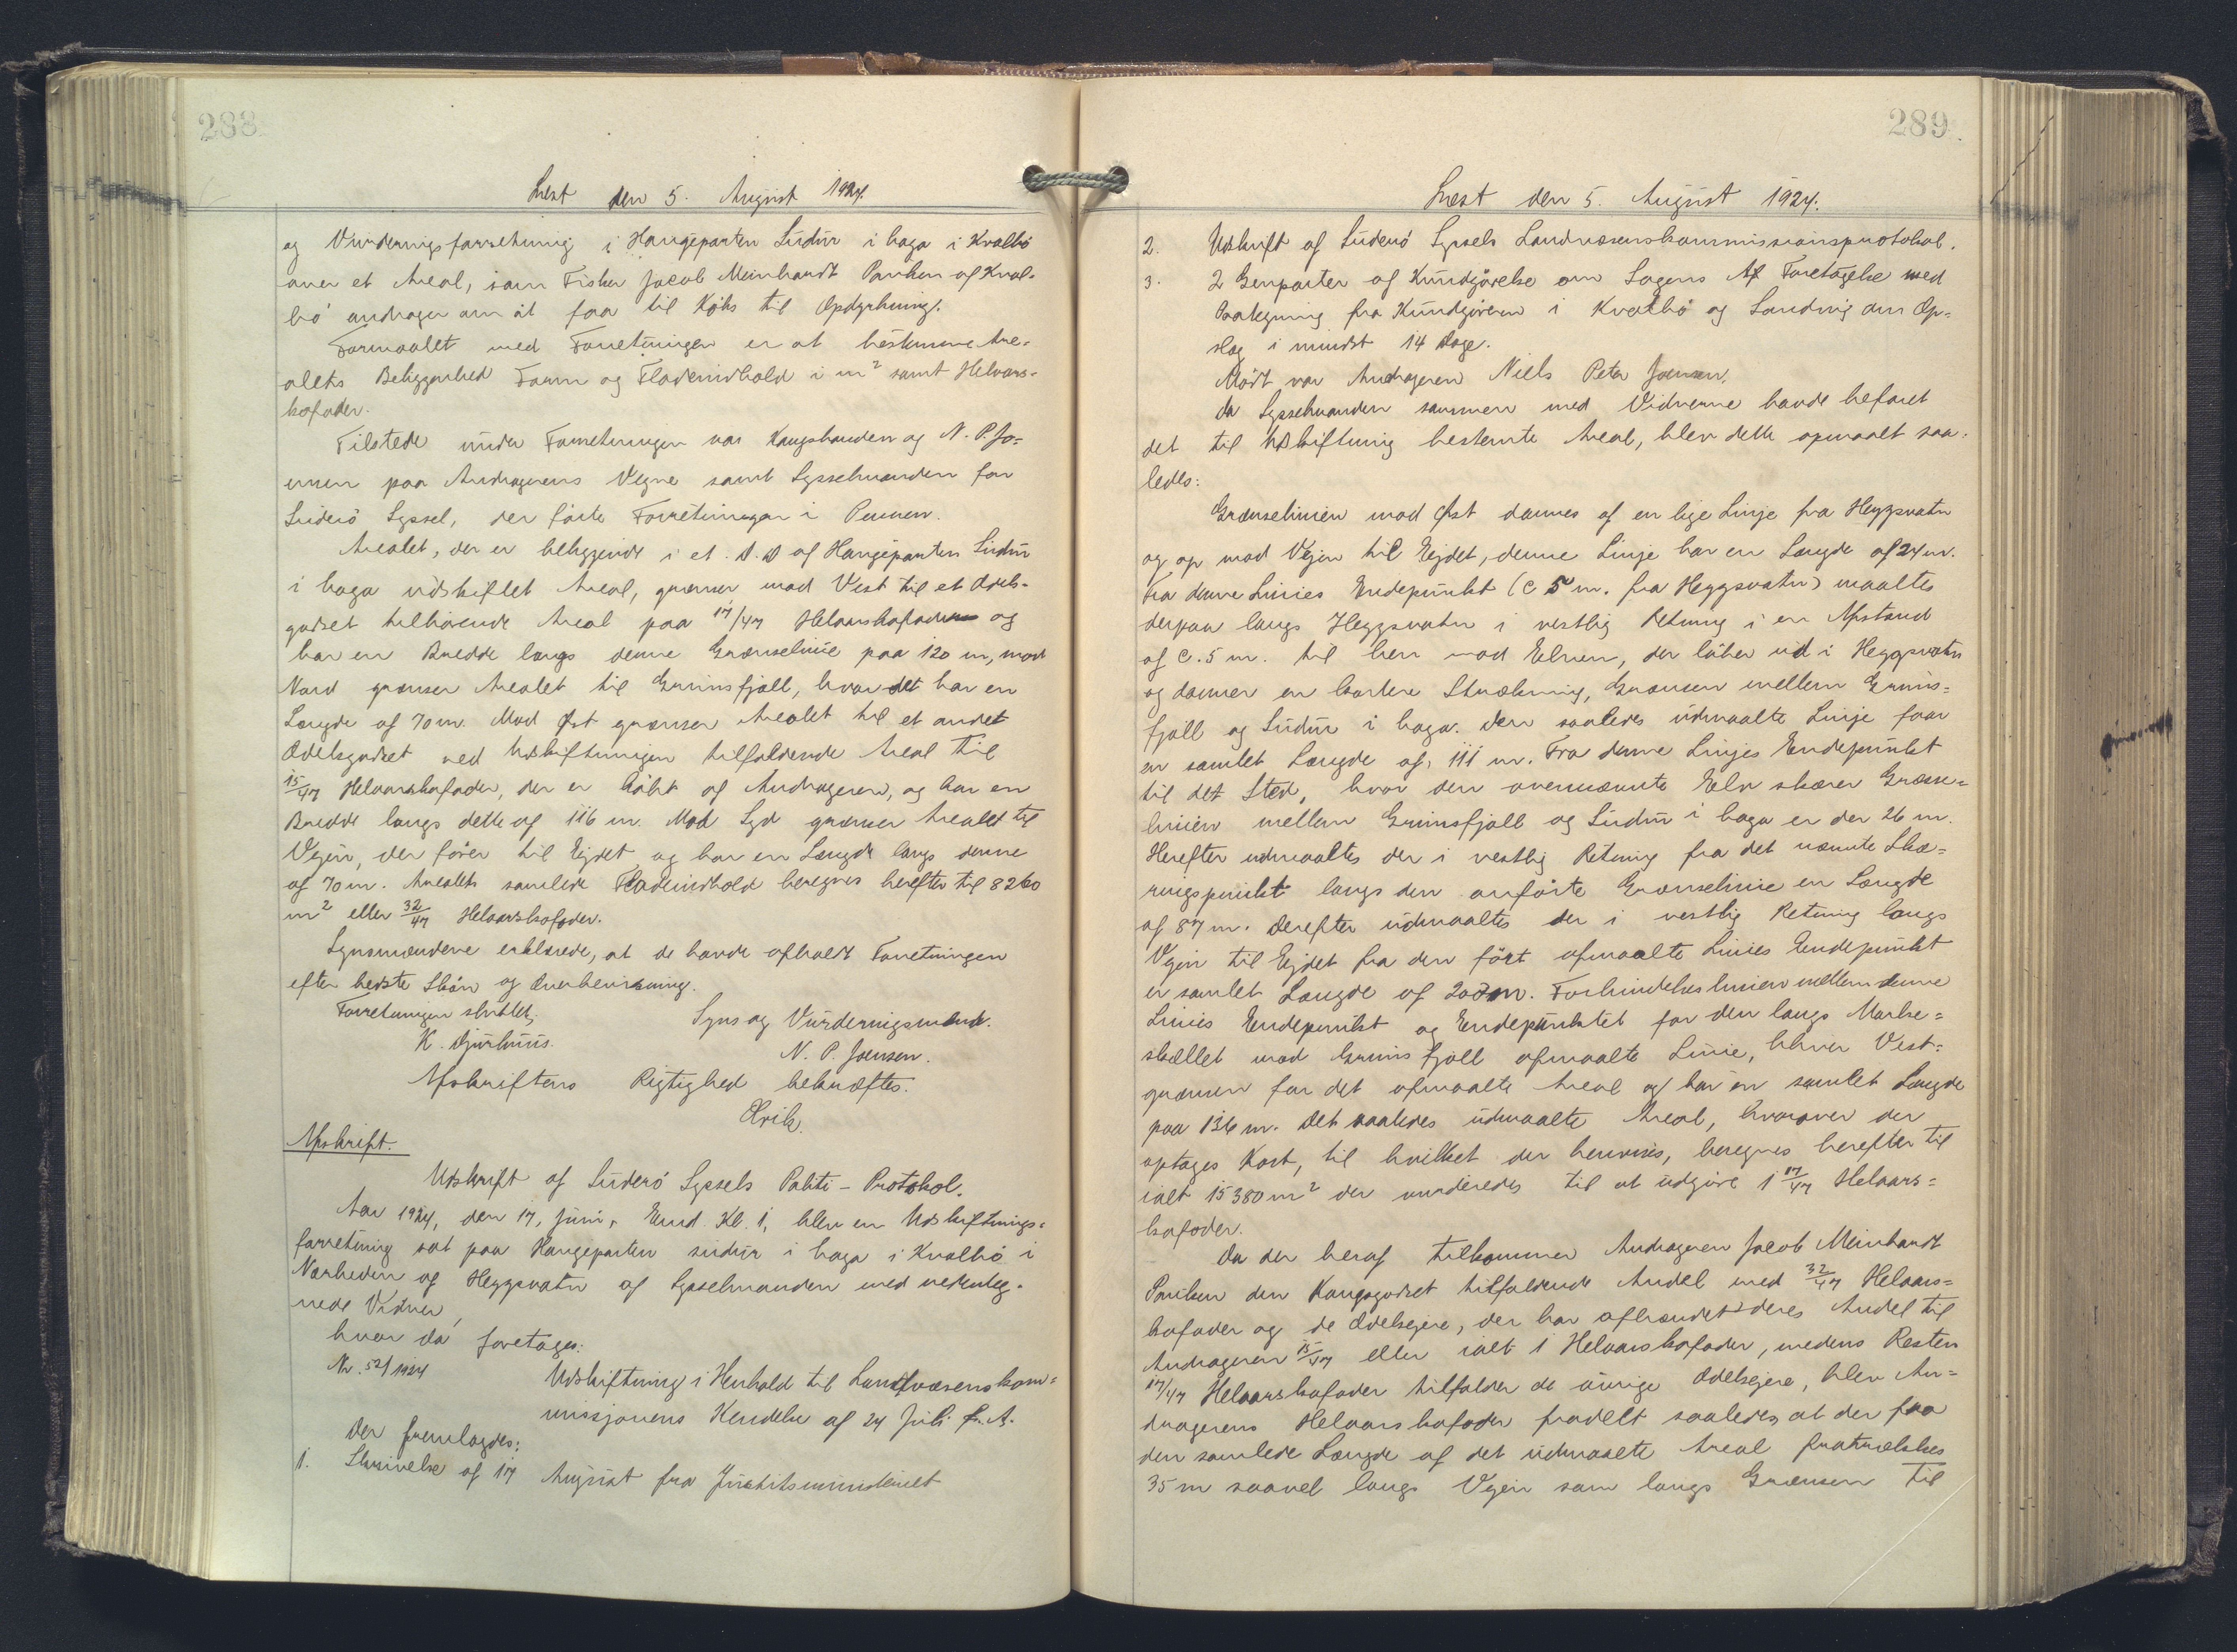 288
Læst den 5. August 1924.
og Vurderingsforretning i Haugeparten Sudur i haga i Kvalbö
over et Areal, som Fisker Jacob Meinhardt Poulsen af Kval-
bö andrager om at faa til Köbs til Opdyrkning.
Formaalet med Forretningen er at bestemme Are-
alets Beliggenhed Form og Fladeindhold i m² samt Helaars-
kofoder.
Tilstede under Forretningen var Kongsbonden og N. P. Jo-
ensen paa Andragerens Vegne samt Sysselmanden for
Suderö Syssel, der förte Forretningen i Pennen.
Arealet, der er beliggende i et D. D af Haugeparten Sudur
i haga udskiftet Areal, grænser mod Vest til et Odels-
godset tilhörende Areal paa 17/47 Helaarskofoder og
har en Bredde langs denne Grænselinie paa 120 m, mod
Nord grænser Arealet til Grimsfjall, hvor det har en
Længde af 70 m. Mod Øst grænser Arealet til et andet
Odelsgodset ved Udskiftningen tilfaldende Areal til
15/47 Helaarskofoder, der er köbt af Andrageren, og har en
Bredde langs dette af 116 m. Mod Syd grænser Arealet til
Vejen, der förer til Ejdet og har en Længde langs denne
af 70 m. Arealets samlede Fladeindhold beregnes herefter til 8260
m² eller 32/47 Helaarskofoder.
Synsmændene erklærede, at de havde afholdt Forretningen
efter bedste Skön og Overbevisning.
Forretningen sluttet,
Syns og Vurderingsmænd.
K. Djurhuus.
N. P. Joensen.
Afskriftens Rigtighed bekræftes.
Afskrift.
Udskrift af Suderö Syssels Politi-Protokol.
Aar 1924, den 17. Juni, Emd. Kl. 1, blev en Udskiftnings-
forretning sat paa Haugeparten sudur i haga i Kvalbö i
Nærheden af Heyggsvatn af Sysselmanden med underteg-
nede Vidner,
hvor da foretoges:
Nr. 52/1924
Udskiftning i Henhold til Landvæsenskom-
missionens Kendelse af 24 Juli f. A.
Der fremlagdes:
1. Skrivelse af 17 August fra Justitsministeriet
289
Læst den 5. August 1924.
2. Udskrift af Suderö Syssels Landvæsenskommissionsprotokol.
3. 2 Genparter af Kundgörelse om Sagens Af Foretagelse med
Paategning fra Kundgöreren i Kvalbö og Sandvig om Op-
slag i mindst 14 Dage.
Mödt var Andrageren Niels Peter Joensen.
Da Sysselmanden sammen med Vidnerne havde befaret
det til Udskiftning bestemte Areal, blev dette opmaalt saa-
ledes:
Grænselinien mod Øst dannes af en lige Linje fra Heyggsvatn
og op mod Vejen til Ejdet, denne Linje har en Længde af 24 m.
Fra denne Linies Endepunkt (c 5 m. fra Heyggsvatn) maaltes
derpaa langs Heyggsvatn i vestlig Retning i en Afstand
af c. 5 m. til hen mod Elven, der löber ud i Heyggsvatn
og danner en kortere Strækning, Grænsen mellem Grims-
fjall og Sudur i haga. Den saaledes udmaalte Linje faar
en samlet Længde af 111 m. Fra denne Linjes Endepunkt
til det Sted, hvor den ovennævnte Elv skærer Grænse-
linien mellem Grimsfjall og Sudur i haga er der 26 m.
Herefter udmaaltes der i vestlig Retning fra det nævnte Skæ-
ringspunkt langs den anförte Grænselinie en Længde
af 87 m. Derefter udmaaltes der i vestlig Retning langs
Vejen til Ejdet fra den först afmaalte Linies Endepunkt
en samlet Længde af 200 m. Forbindelseslinien mellem denne
Linies Endepunkt og Endepunktet for den langs Marke-
skellet mod Grimsfjall afmaalte Linie, bliver Vest-
grænsen for det afmaalte Areal og har en samlet Længde
paa 136 m. Det saaledes udmaalte Areal, hvorover der
optages Kort, til hvilket der henvises, beregnes herefter til
ialt 15380 m² der vurderedes til at udgöre 1 17/47 Helaars-
kofoder.
Da der heraf tilkommer Andrageren Jacob Meinhardt
Poulsen den Kongsgodset tilfaldende Andel med 32/47 Helaars-
kofoder og de Odelsejere, der har afhændet deres Andel til
Andrageren 15/47 eller ialt 1 Helaarskofoder, medens Resten
17/47 Helaarskofoder tilfalder de övrige Odelsejere, blev An-
dragerens Helaarskofoder fradelt saaledes, at der fra
den samlede Længde af det udmaalte Areal fratrækkes
35 m saavel langs Vejen som langs Grænsen til